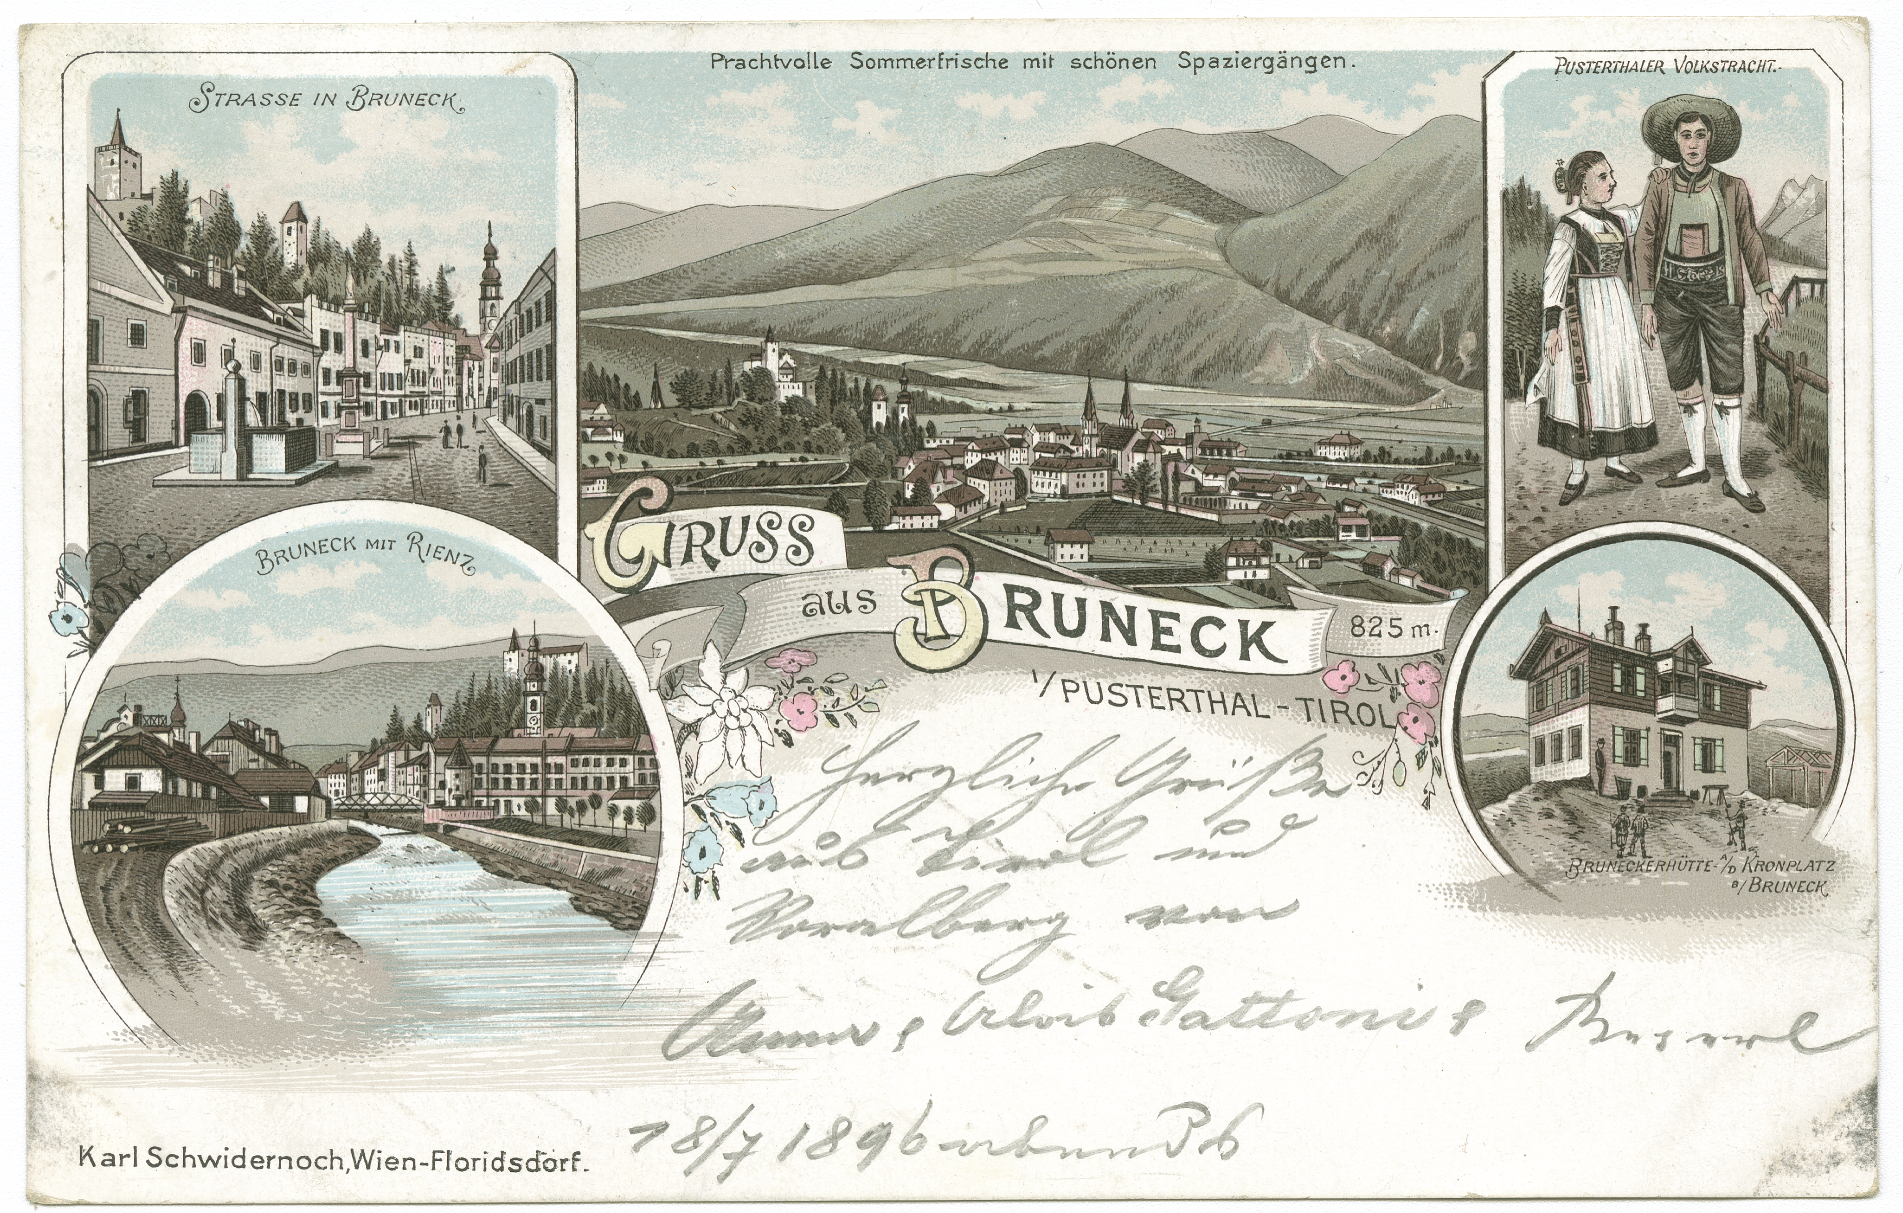 Prachtvolle Sommerfrische mit schönen Spaziergängen.
STRASSE IN BRUNECK
PUSTERTHALER VOLKSTRACHT.-
BRUNECK MIT RIENZ
GRUSS
aus BRUNECK 825 m.
I/PUSTERTHAL-TIROL
BRUNECKERHÜTTE-A/D KRONPLATZ
B/BRUNECK
Herzliche Grüße
aus Tirol und
Voralberg von
Alois Gattoni
18/7 1896 abends
Karl Schwidernoch, Wien-Floridsdorf.